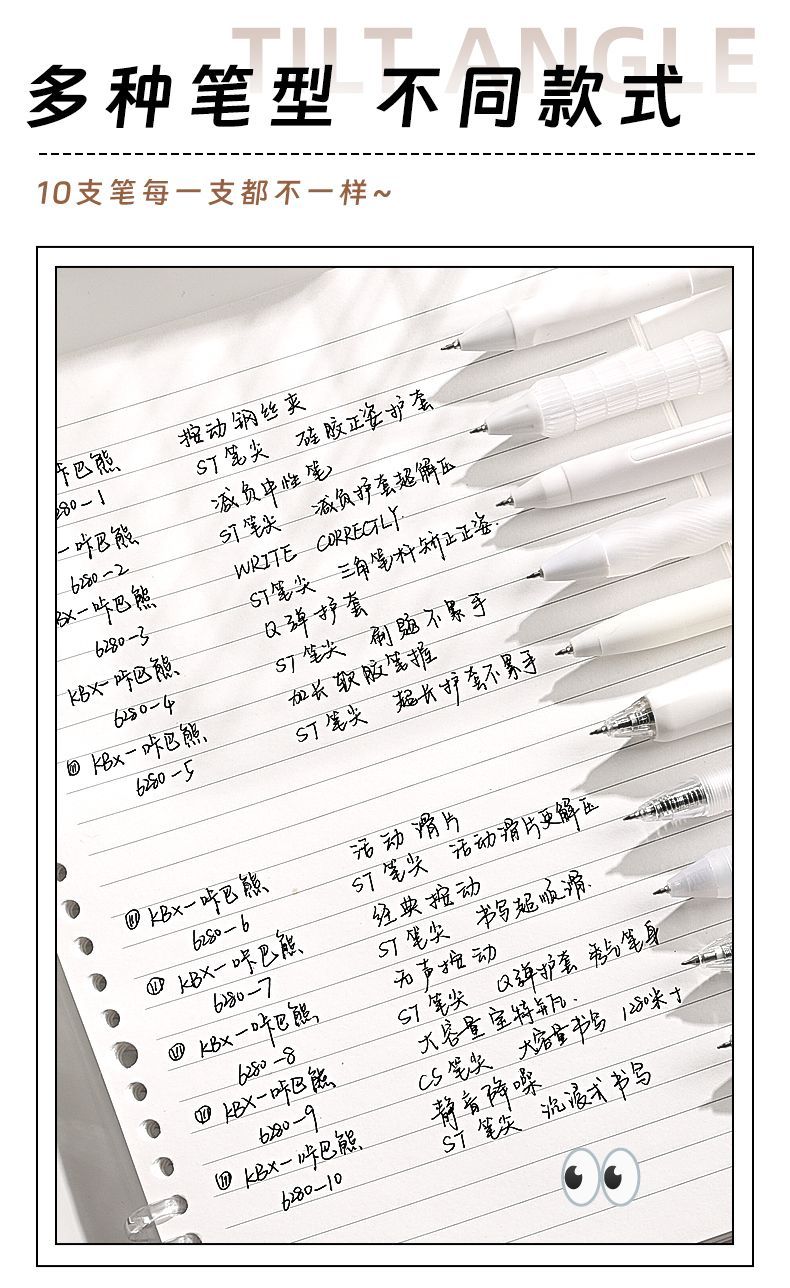 TILT ANGLE
多种笔型 不同款式
10支笔每一支都不一样~
按动钢丝夹
咔巴熊 ST笔尖 硅胶正姿护套
280-1 减负中性笔
-咔巴熊 ST笔尖 减负护套超解压
6280-2 WRITE CORRECTLY
BX-咔巴熊 ST笔尖 三角笔杆矫正正姿.
6280-3 Q弹护套
KBX-咔巴熊 ST笔尖 刷题不累手
6280-4 加长软胶笔握
KBX-咔巴熊 ST笔尖 超长护套不累手
6280-5
活动滑片
KBX-咔巴熊 ST笔尖 活动滑片更解压
6280-6 经典按动
KBX-咔巴熊 ST笔尖 书写超顺滑.
6280-7 无声按动
KBX-咔巴熊 ST笔尖 Q弹护套 笔身
6280-8 大容量宝特瓶.
KBX-咔巴熊 CS笔尖 大容量书写 1280米+
6280-9 静音降噪
KBX-咔巴熊 ST笔尖 沉浸式书写
6280-10